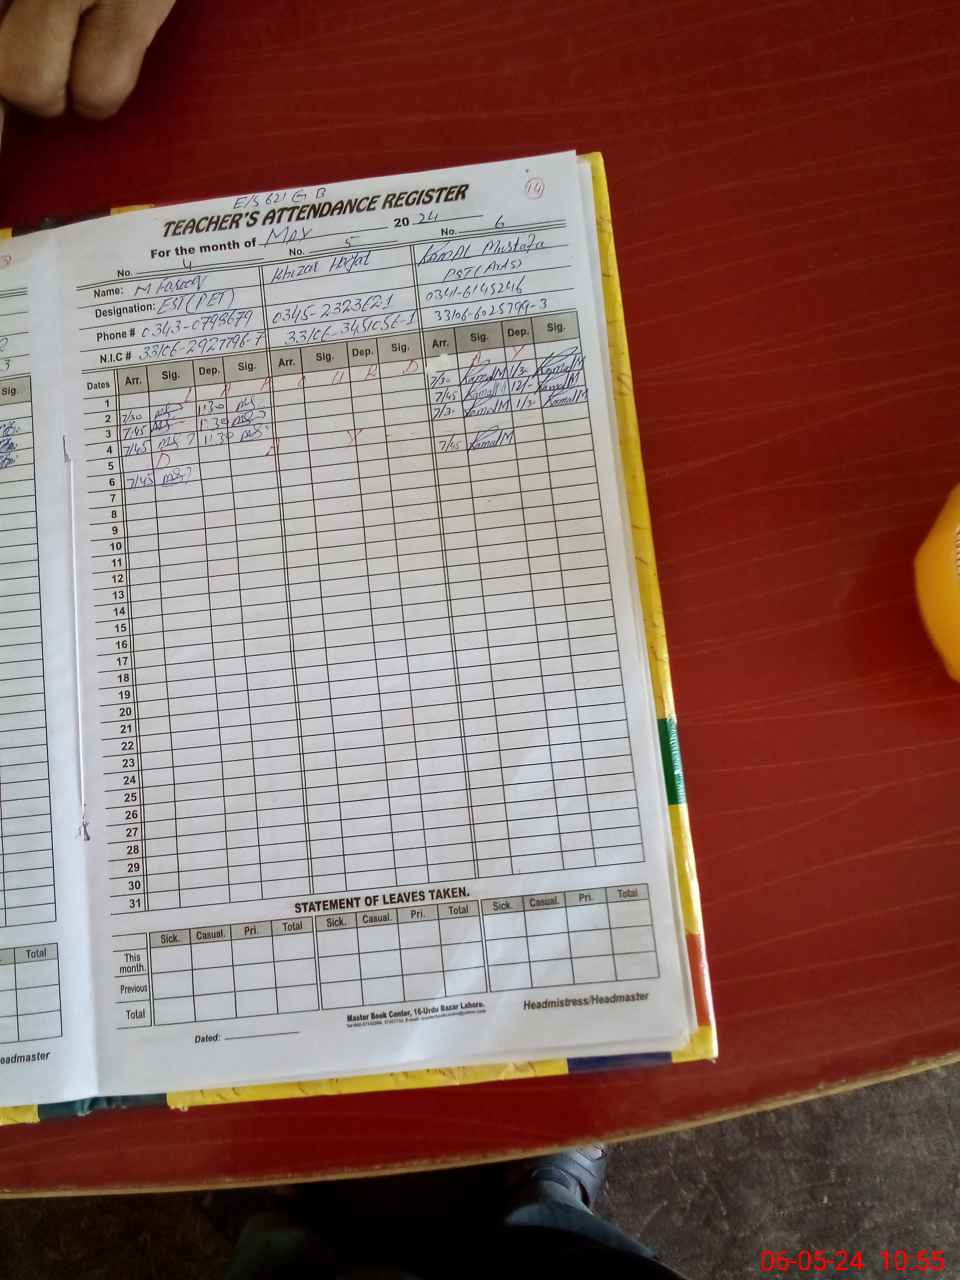 E/S 621 G B
14
TEACHER'S ATTENDANCE REGISTER
For the month of May 2024
No. 4 No. 5 No. 6
Name: Khizar Kamal Mustafa
Designation: EST (PET) PST (Arts)
Phone # 0343-0798679 0345-2323621 0341-6145246
N.I.C # 33106-2927796-7 33106-3451056-1 33106-6025799-3
Dates Arr. Sig. Dep. Sig. Arr. Sig. Dep. Sig. Arr. Sig. Dep. Sig.
1
2 7/30 1:30 7/30 KamalM 1/30 KamalM
3 7:45 1:30 7/45 KamalM 12/- KamalM
4 7/45 1:30 7/3. KamalM 1/3. KamalM
5
6 7/45 7/45 KamalM
7
8
9
10
11
12
13
14
15
16
17
18
19
20
21
22
23
24
25
26
27
28
29
30
31
STATEMENT OF LEAVES TAKEN.
Sick. Casual. Pri. Total Sick. Casual. Pri. Total Sick. Casual. Pri. Total
This month.
Previous
Total
Dated:
Master Book Center, 16-Urdu Bazar Lahore.
Headmistress/Headmaster
Sig.
Total
eadmaster
06-05-24 10:55